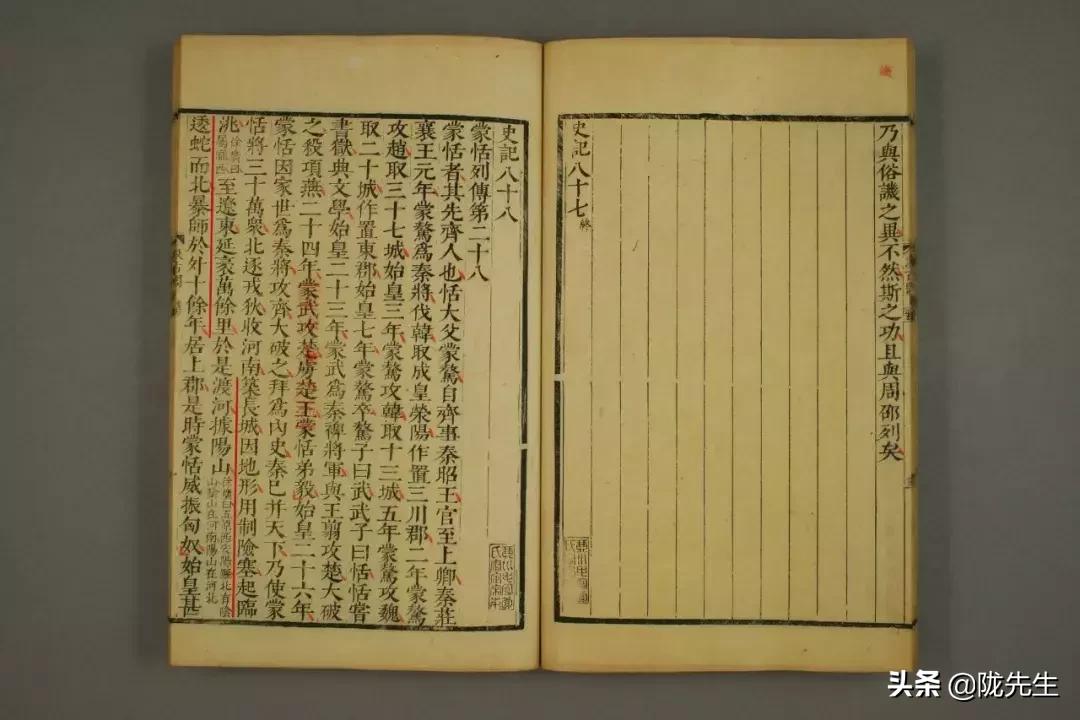 乃與俗議之異不然斯之功且與周邵列矣
史記八十七
終
史記八十八
蒙恬列傳第二十八
蒙恬者其先齊人也恬大父蒙驁自齊事秦昭王官至上卿秦莊
襄王元年蒙驁爲秦將伐韓取成皋滎陽作置三川郡二年蒙驁
攻趙取三十七城始皇三年蒙驁攻韓取十三城五年蒙驁攻魏
取二十城作置東郡始皇七年蒙驁卒驁子曰武武子曰恬恬嘗
書獄典文學始皇二十三年蒙武爲秦裨將軍與王翦攻楚大破
之殺項燕二十四年蒙武攻楚虜楚王蒙恬弟毅始皇二十六年
蒙恬因家世爲秦將攻齊大破之拜爲內史秦已并天下乃使蒙
恬將三十萬衆北逐戎狄收河南築長城因地形用制險塞起臨
洮徐廣曰屬隴西至遼東延袤萬餘里於是渡河據陽山徐廣曰五原西安陽縣北有陰山陰山在河南陽山在河北
逶蛇而北暴師於外十餘年居上郡是時蒙恬威振匈奴始皇甚
头条 @陇先生